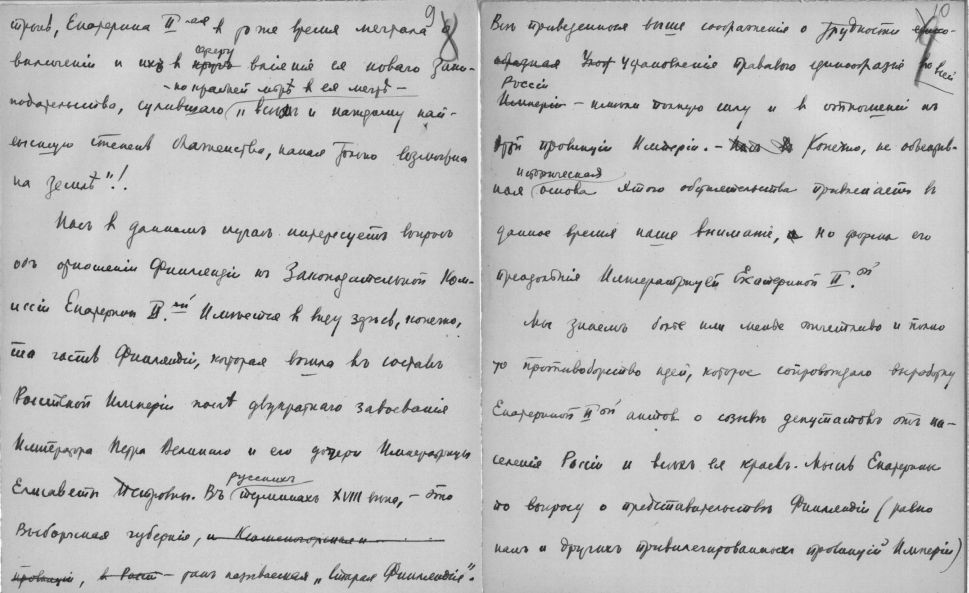 9
8
строѣ, Екатерина II-ая въ то же время мечтала о
включеніи и ихъ въ кругъ сферу вліянія ея новаго зако-
- по крайней мѣрѣ въ ея мечтѣ -
нодательства, сулившаго „всѣмъ и каждому наи-
высшую степень блаженства, какая только возможна
на землѣ"!
Насъ въ данномъ случаѣ интересуетъ вопросъ
объ отношеніи Финляндіи къ Законодательной Ком-
миссіи Екатерины II-ой. Имѣется въ виду здѣсь, конечно,
та часть Финляндіи, которая вошла въ составъ
Россійской Имперіи послѣ двукратнаго завоеванія
Императора Петра Великаго и его дочери Императрицы
русскихъ
Елисаветы Петровны. Въ терминахъ XVIII вѣка, - это
Выборгская губернія, и Кюменогорская
провинція, въ - такъ называемая „Старая Финляндія".
10
Всѣ приведенныя выше соображенія о трудности
установленія правового единообразія по всей
Россіи
Имперіи - имѣли полную силу и въ отношеніи къ
этой провинціи Имперіи. - Конечно, не объектив-
историческая
ная основа этого обстоятельства привлекаетъ въ
данное время наше вниманіе, но форма его
преодолѣнія Императрицей Екатериной II-ой.
Мы знаемъ болѣе или менѣе отчетливо и полно
то противоборство идей, которое сопровождало выработку
Екатериной II-ой актовъ о созывѣ депутатовъ отъ на-
селенія Россіи и всѣхъ ея краевъ. Мысль Екатерины
по вопросу о представительствѣ Финляндіи (равно
какъ и другихъ привилегированныхъ провинцій Имперіи)